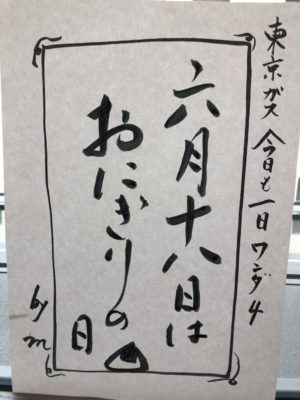 東京ガス 今日も一日ワンダ4
六月十八日は
おにぎりの
日
by m